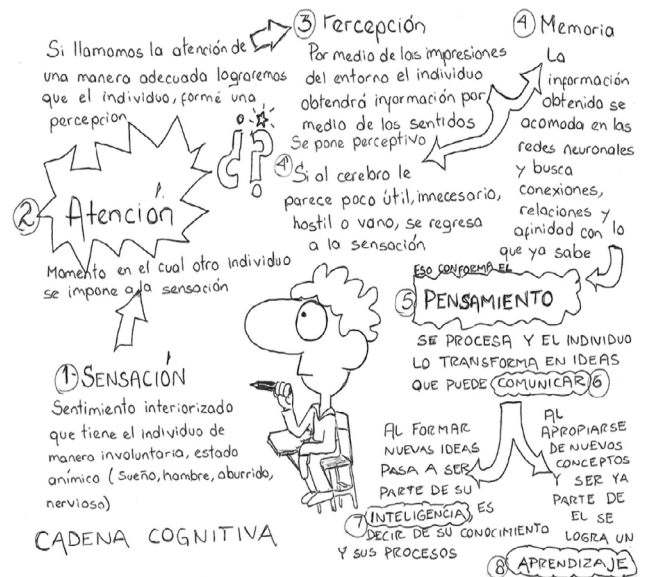 Si llamamos la atención de
una manera adecuada lograremos
que el individuo, formé una
percepcion
3 Percepción
Por medio de las impresiones
del entorno el individuo
obtendrá información por
medio de los sentidos
Se pone perceptivo
4 Memoria
La
información
obtenida se
acomoda en las
redes neuronales
y busca
conexiones,
relaciones y
afinidad con lo
que ya sabe
4' Si al cerebro le
parece poco útil, innecesario,
hostil o vano, se regresa
a la sensación
¿?
2 Atención
Momento en el cual otro individuo
se impone a la sensación
1- SENSACIÓN
Sentimiento interiorizado
que tiene el individuo de
manera involuntaria, estado
anímico (Sueño, hambre, aburrido,
nervioso)
CADENA COGNITIVA
ESO CONFORMA EL
5 PENSAMIENTO
SE PROCESA Y EL INDIVIDUO
LO TRANSFORMA EN IDEAS
QUE PUEDE COMUNICAR 6
AL FORMAR
NUEVAS IDEAS
PASA A SER
PARTE DE SU
7 INTELIGENCIA, ES
DECIR DE SU CONOCIMIENTO
Y SUS PROCESOS
AL
APROPIARSE
DE NUEVOS
CONCEPTOS
Y SER YA
PARTE DE
EL SE
LOGRA UN
8 APRENDIZAJE